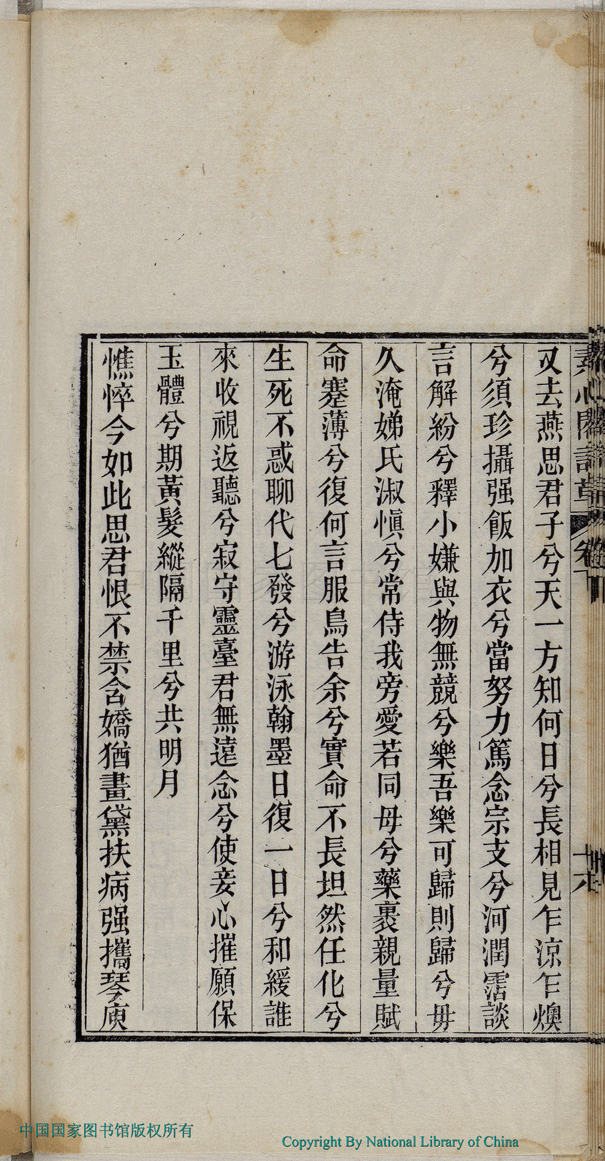 又去燕思君子兮天一方知何日兮長相見乍涼乍燠
兮須珍攝强飯加衣兮當努力篤念宗支兮河潤霑談
言解紛兮釋小嫌與物無競兮樂吾樂可歸則歸兮毋
久淹娣氏淑愼兮常侍我旁愛若同母兮藥裹親量賦
命蹇薄兮復何言服鳥告余兮實命不長坦然任化兮
生死不惑聊代七發兮游泳翰墨日復一日兮和緩誰
來收視返聽兮寂守靈臺君無遠念兮使妾心摧願保
玉體兮期黃髮縱隔千里兮共明月
憔悴今如此思君恨不禁含嬌猶畫黛扶病强攜琴庾
中国国家图书馆版权所有
Copyright By National Library of China